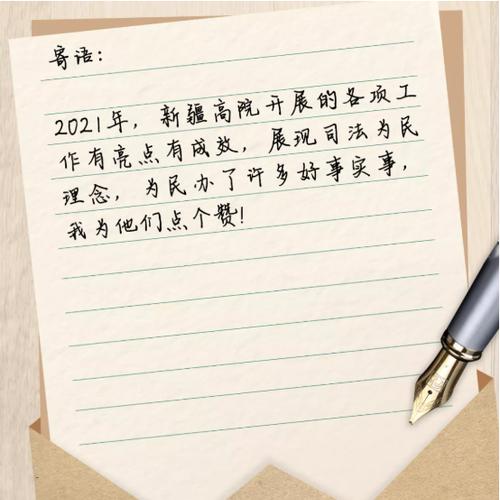 寄语：
2021年，新疆高院开展的各项工
作有亮点有成效，展现司法为民
理念，为民办了许多好事实事，
我为他们点个赞！